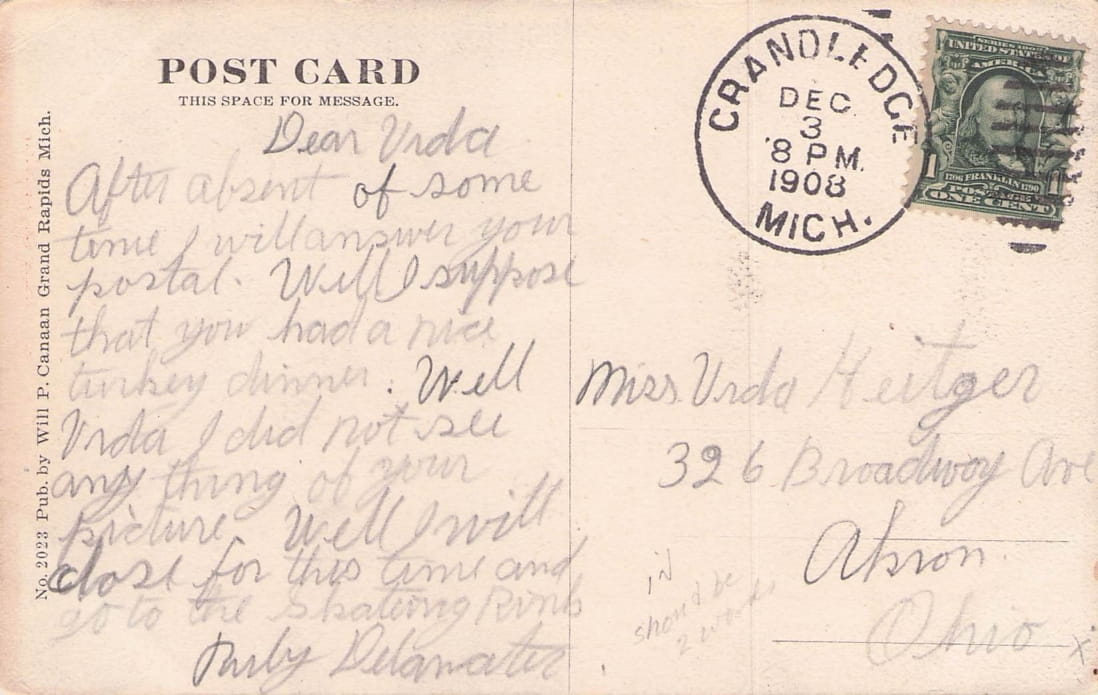 POST CARD
THIS SPACE FOR MESSAGE.
No. 2023 Pub. by Will P. Canaan Grand Rapids Mich.
Dear Vrda
After absent of some
time I will answer your
postal. Well I suppose
that you had a nice
turkey dinner. Well
Vrda I did not see
any thing of your
picture. Well I will
close for this time and
go to the Skateing Rink
Delamater
CRANDLEDGE
DEC
3
8 PM.
1908
MICH.
SERIES 1902
UNITED STATES OF
AMERICA
1706 FRANKLIN 1790
POSTAGE
1 1
ONE CENT
Miss Vrda Heitger
326 Broadway Ave
Akron.
Ohio
IN
should be
2 words
x